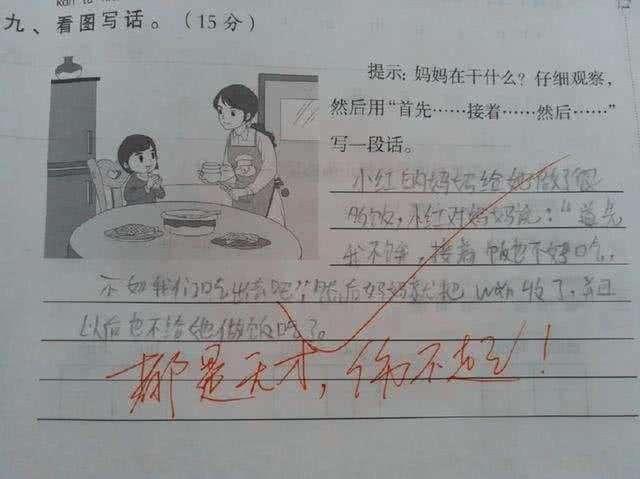 九、看图写话。（15分）
提示：妈妈在干什么？仔细观察，
然后用“首先……接着……然后……”
写一段话。
小红的妈妈给她做好了
晚饭，小红对妈妈说：“首先
我不饿，接着饭也不好吃，
不如我们吃出去吧”，然后妈妈就把 wǎn 收了，并且
以后也不给她做饭吃了。
都是天才，伤不起！